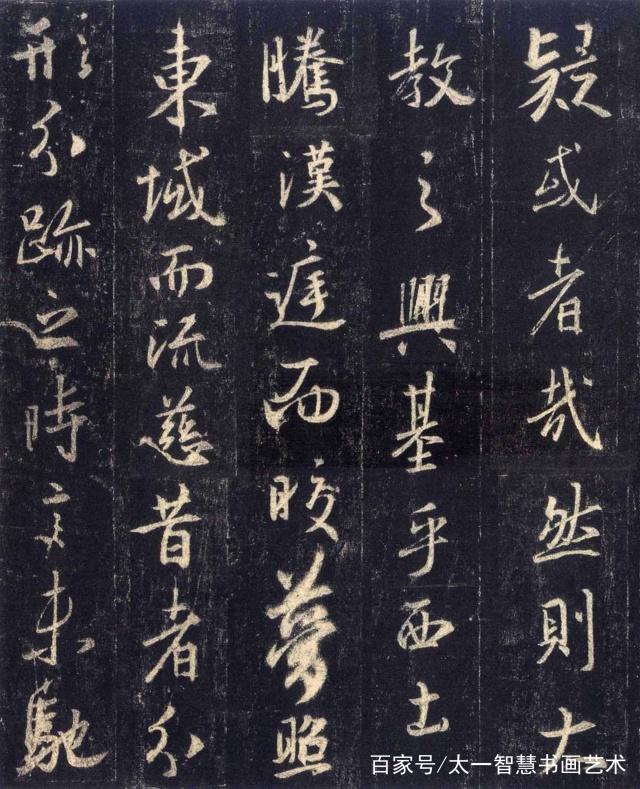 疑或者哉然則大
教之興基乎西土
騰漢庭而皎夢照
東域而流慈昔者分
形分跡之時言未馳
百家号/太一智慧书画艺术